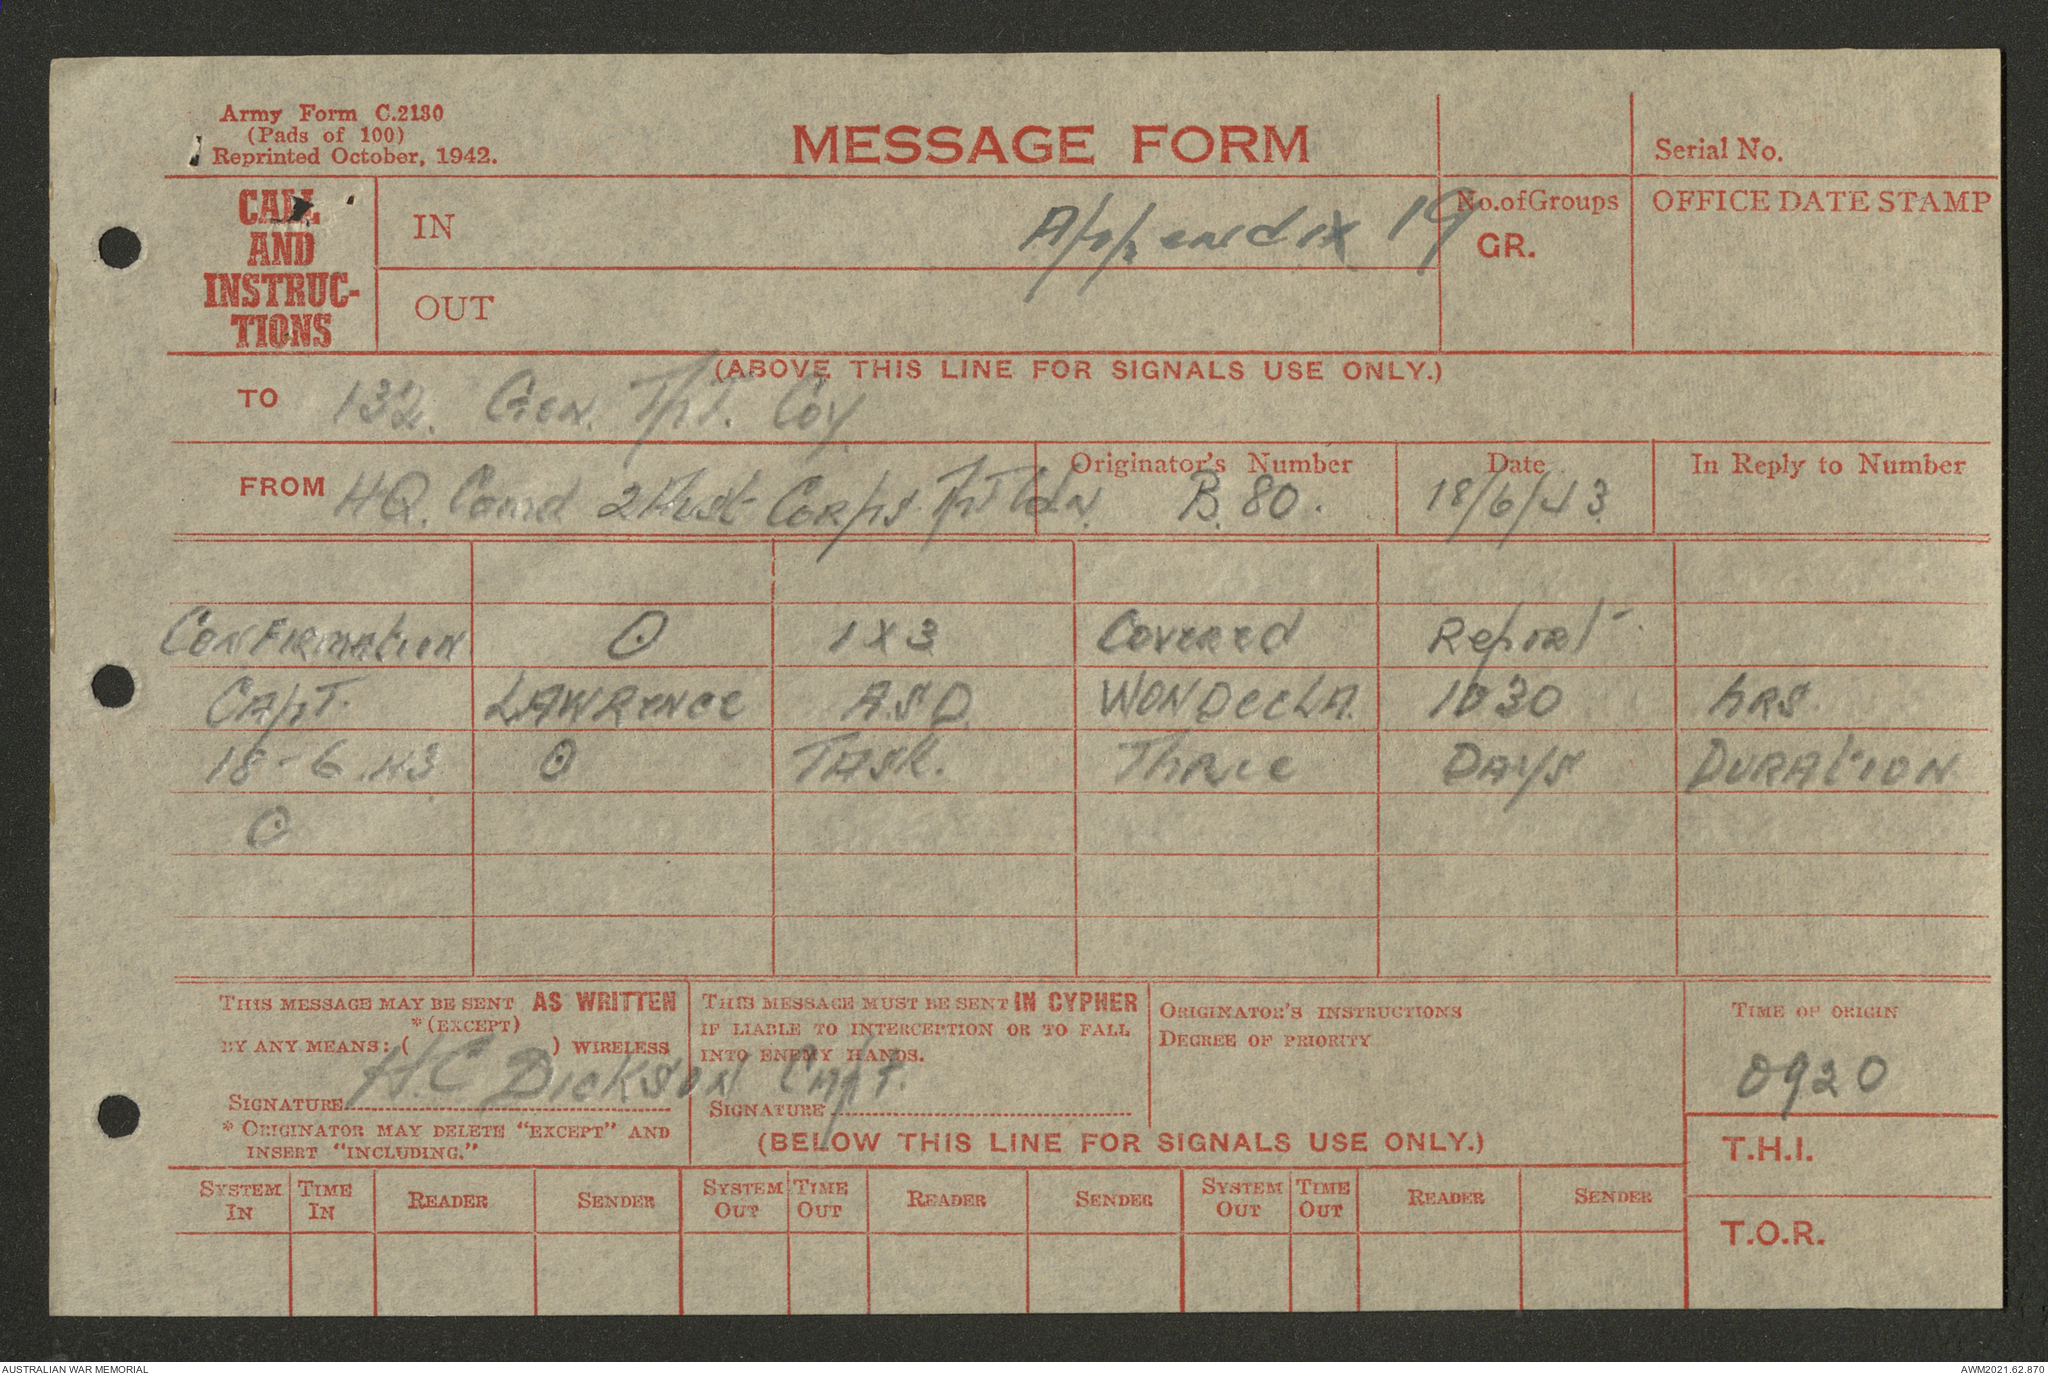 Army Form C.2130
(Pads of 100)
Reprinted October, 1942.
MESSAGE FORM
Serial No.
CALL
AND
INSTRUC-
TIONS
IN
Appendix 19
No. of Groups
GR.
OFFICE DATE STAMP
OUT
(ABOVE THIS LINE FOR SIGNALS USE ONLY.)
TO 132. Gen. Tpt. Coy.
FROM HQ. Comd 2 Aust Corps Tpt Coln.
Originator's Number
B. 80.
Date
18/6/43
In Reply to Number
CONFIRMATION ⊙ 1 x 3 Covered Report
CAPT. LAWRENCE A.S.D. WONDECLA. 1030 hrs.
18-6.43 ⊙ TASK. Three DAYS DURATION
⊙
THIS MESSAGE MAY BE SENT AS WRITTEN
* (EXCEPT)
BY ANY MEANS: ( ) WIRELESS
H.C Dickson Capt.
SIGNATURE
* ORIGINATOR MAY DELETE "EXCEPT" AND
INSERT "INCLUDING."
THIS MESSAGE MUST BE SENT IN CYPHER
IF LIABLE TO INTERCEPTION OR TO FALL
INTO ENEMY HANDS.
SIGNATURE
ORIGINATOR'S INSTRUCTIONS
DEGREE OF PRIORITY
TIME OF ORIGIN
0920
(BELOW THIS LINE FOR SIGNALS USE ONLY.)
T.H.I.
T.O.R.
SYSTEM IN TIME IN READER SENDER SYSTEM OUT TIME OUT READER SENDER SYSTEM OUT TIME OUT READER SENDER
AUSTRALIAN WAR MEMORIAL
AWM2021.62.870